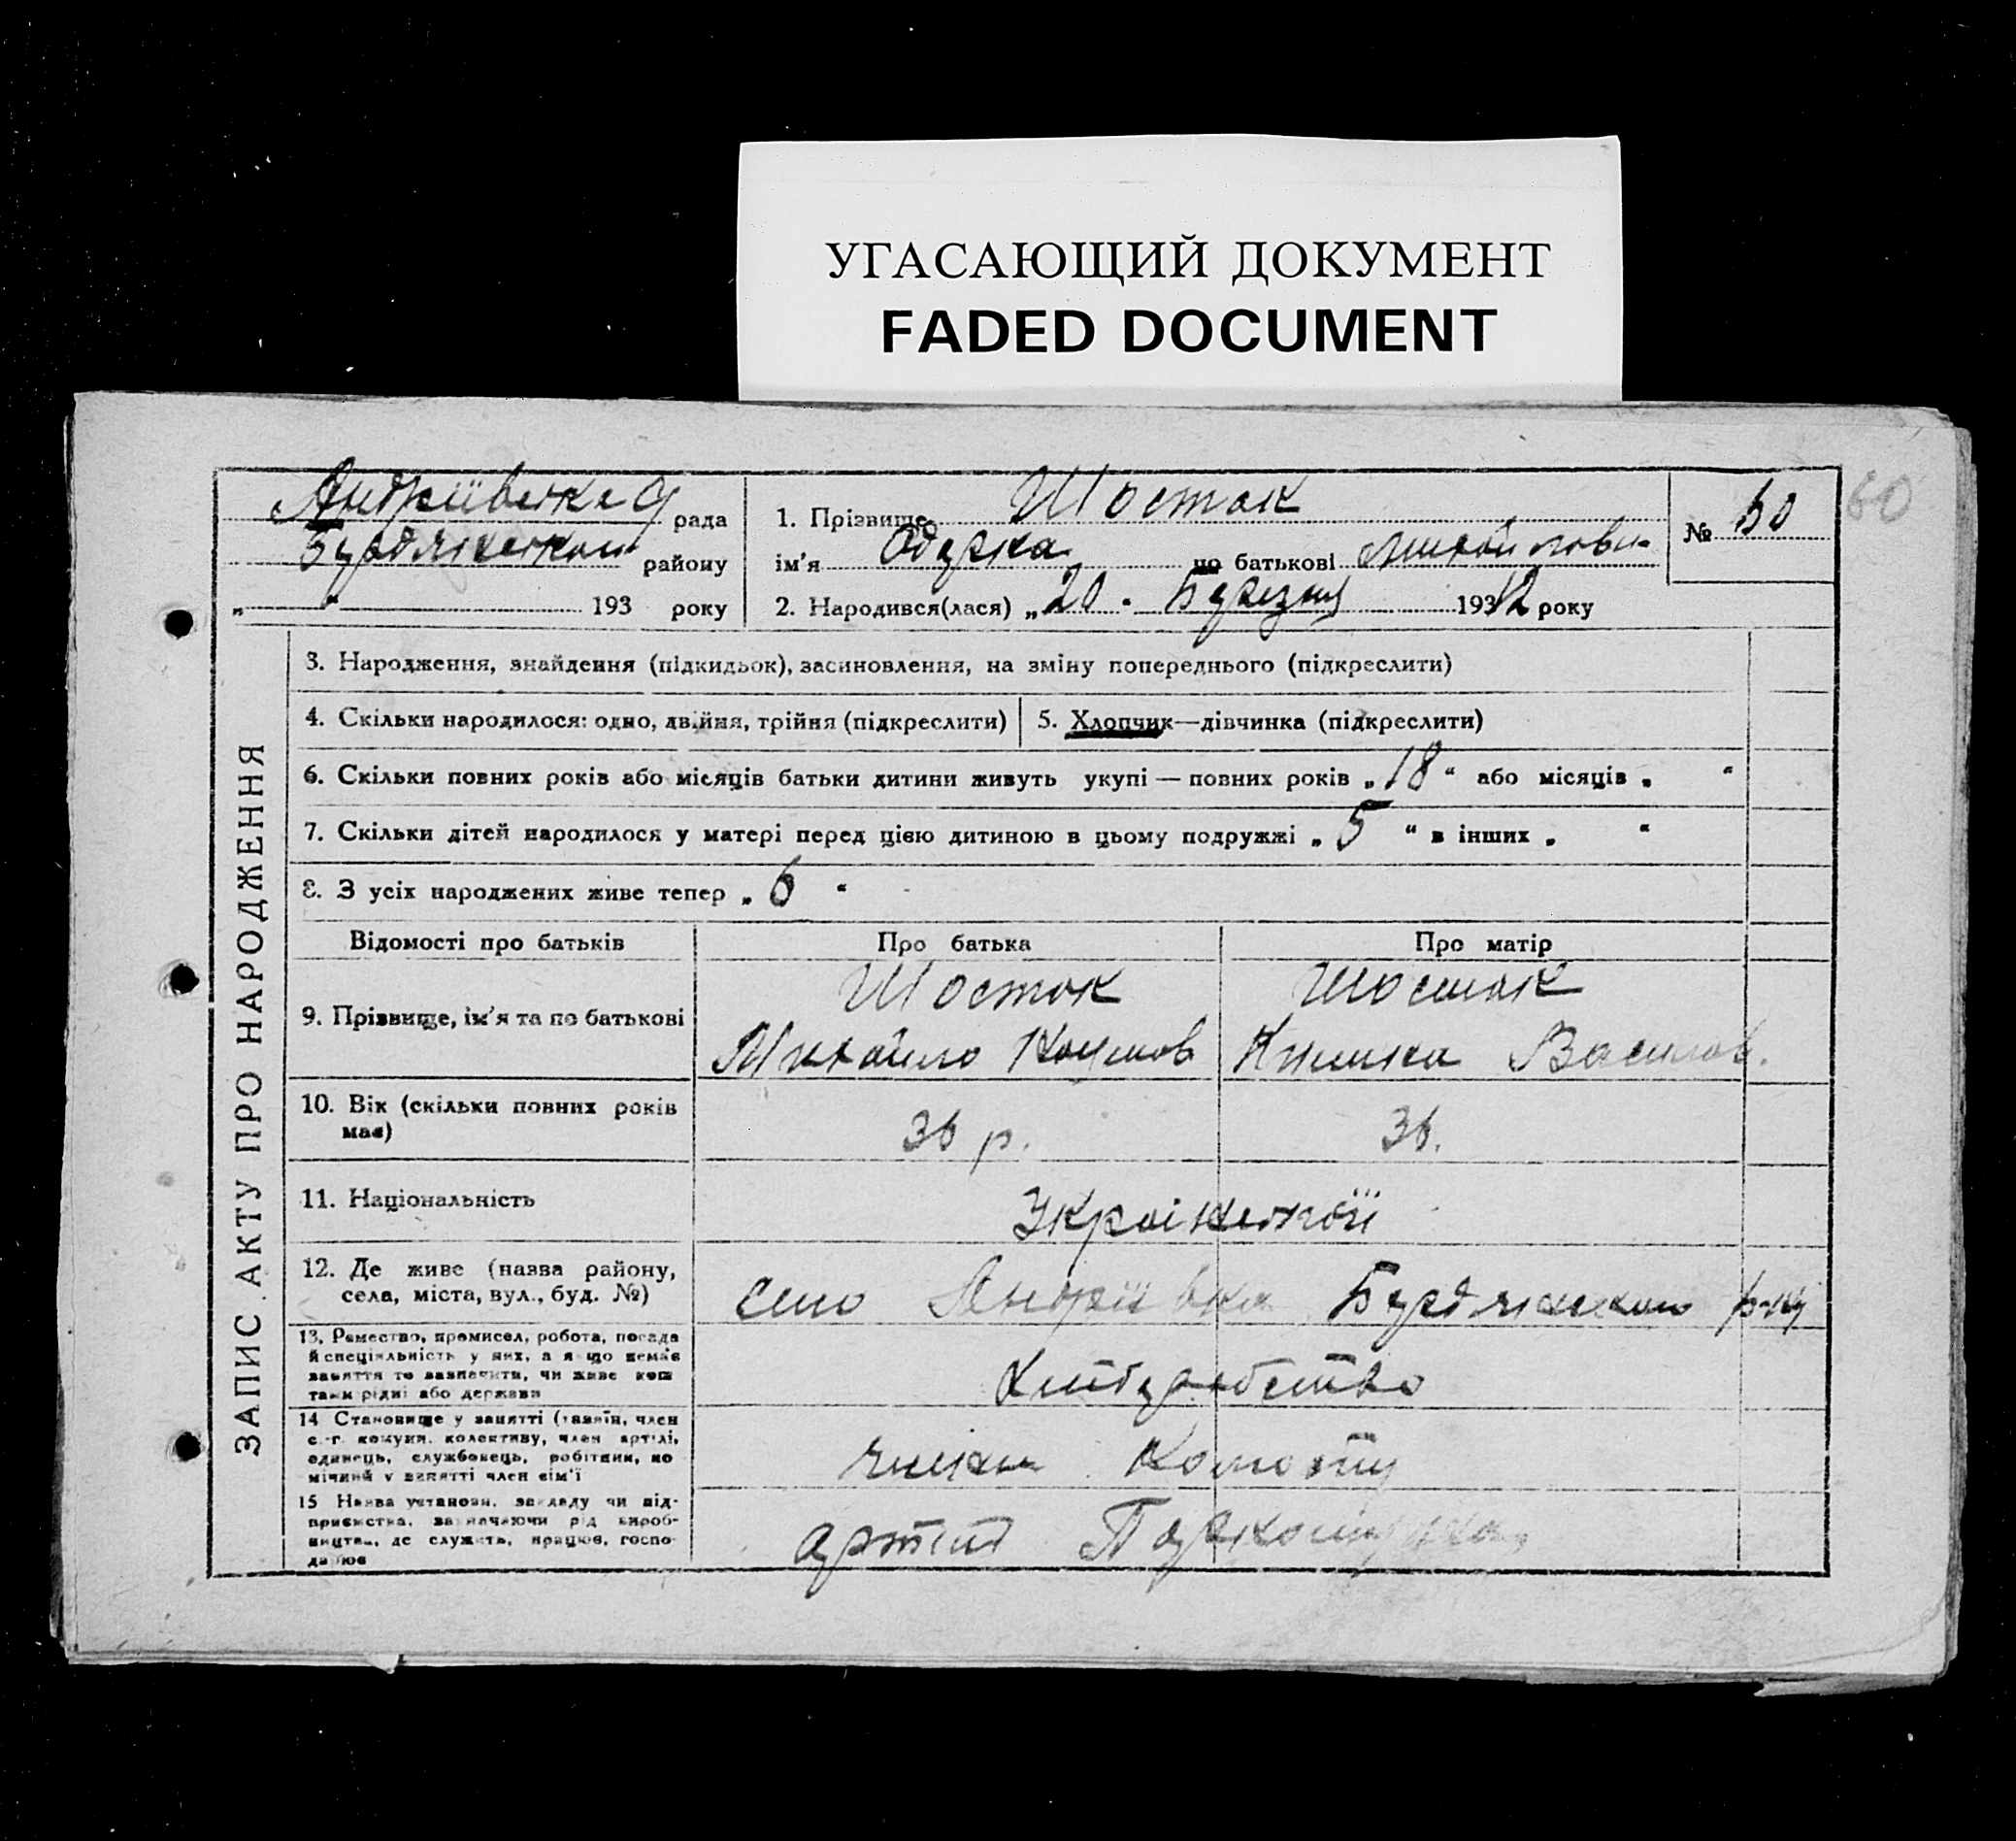 УГАСАЮЩИЙ ДОКУМЕНТ
FADED DOCUMENT
60
ЗАПИС АКТУ ПРО НАРОДЖЕННЯ
Андріївська рада
району
„ “ 193 року
1. Прізвище Шостак
ім’я Одарка по батькові
2. Народився(лася) „20 Березня 1932 року
№ 60
3. Народження, знайдення (підкидьок), засиновлення, на зміну попереднього (підкреслити)
4. Скільки народилося: одно, двійня, трійня (підкреслити)
5. Хлопчик—дівчинка (підкреслити)
6. Скільки повних років або місяців батьки дитини живуть укупі — повних років „18“ або місяців „ “
7. Скільки дітей народилося у матері перед цією дитиною в цьому подружжі „5“ в інших „ “
8. З усіх народжених живе тепер „6“
Відомості про батьків Про батька Про матір
9. Прізвище, ім’я та по батькові
Шостак Шостак
Михайло Василів.
10. Вік (скільки повних років має)
36 р. 36.
11. Національність
12. Де живе (назва району,
села, міста, вул., буд. №)
село Андріївка р-ну
13. Ремество, промисел, робота, посада
й спеціяльність у них, а якщо немає
заняття то зазначити, чи живе кош
тами рідні або держави
14 Становище у занятті (хазяїн, член
с.-г. комуни, колективу, член артілі,
одинець, службовець, робітник, по
мічний у занятті член сім’ї
15 Назва установи, закладу чи під-
приємства, зазначаючи рід вироб-
ництва, де служить, працює, госпо-
дарює
артіль